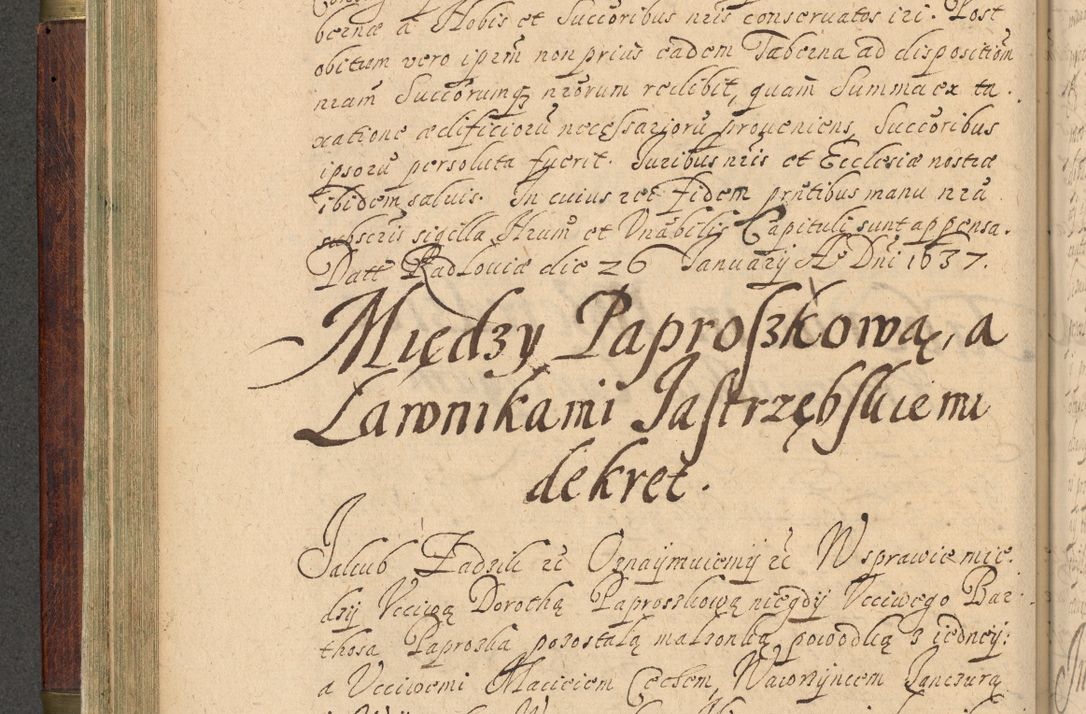 bernæ a Nobis et Succoribus nris conseruatos iri. Post
obitum vero ipsm non prius eadem Taberna ad dispositiom
nram Succorumq nrorum redibit, quam Summa ex ta
xatione ædificiorũ necessariorũ proueniens, Succoribus
ipsorũ persoluta fuerit. Iuribus nris et Ecclesiæ nostræ
ibidem saluis. In cuius rei fidem prñtibus manu nra
subscris sigilla nrum et Vnabilis Capituli sunt appensa.
Datt Radłoviæ die 26 Januarÿ Ao Dni 1637.
Między Paproszkową, a
Ławnikami Jastrzębskiemi
dekret.
Jakub Zadzik etc Oznaÿmuiemÿ etc W sprawie mie
dzÿ Vcciwą Dorothą Paproszkową niegdÿ Vcciwego Bar
thosa Paproszka pozostałą małzonką powodką z iednÿ
a Vcciwemi Macieiem Cechem, Wawrzÿncem Janczurą